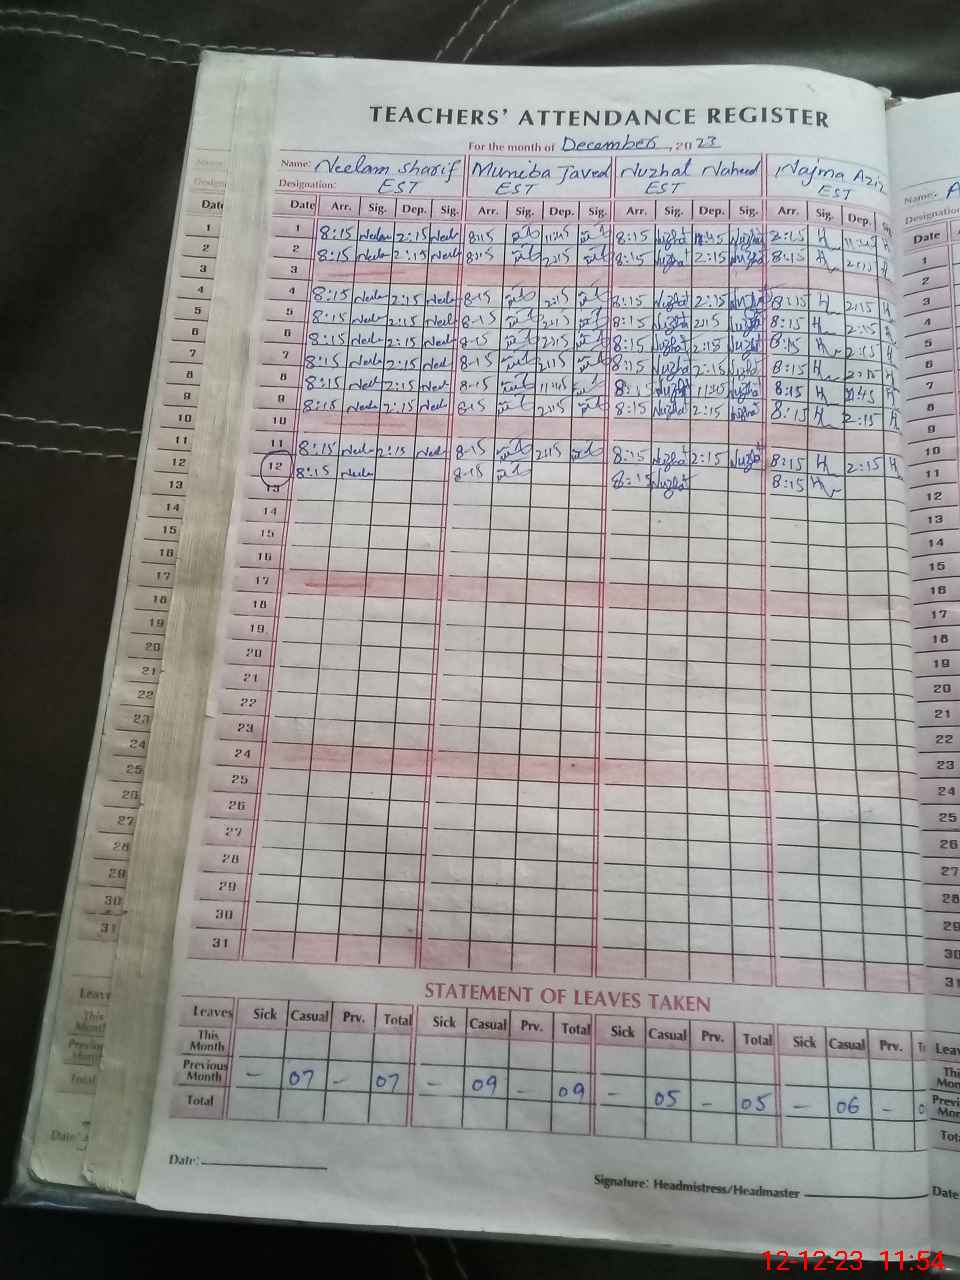 TEACHERS' ATTENDANCE REGISTER
For the month of December, 2023
Name: Neelam Sharif Muniba Javed Nuzhat Naheed Najma Aziz
Designation: EST EST EST EST
Date Arr. Sig. Dep. Sig. Arr. Sig. Dep. Sig. Arr. Sig. Dep. Sig. Arr. Sig. Dep.
1 8:15 Neel 2:15 Neel 8:15 11:45 8:15 Nuzhat 11:45 Nuzhat
2 8:15 Neel 2:15 Neel 8:15 2:15 8:15 Nuzhat 2:15 Nuzhat 8:15
3
4 8:15 Neel 2:15 Neel 8-15 2:15 8:15 Nuzhat 2:15 Nuzhat 8:15 2:15
5 8:15 Neel 2:15 Neel 8-15 2:15 8:15 Nuzhat 2:15 Nuzhat 8:15 2:15
6 8:15 Neel 2:15 Neel 8-15 2:15 8:15 Nuzhat 2:15 Nuzhat 8:15 2:15
7 8:15 Neel 2:15 Neel 8-15 2:15 8:15 Nuzhat 2:15 Nuzhat 8:15 2:15
8 8:15 Neel 2:15 Neel 8-15 11:45 8:15 Nuzhat 11:45 Nuzhat 8:15 11:45
9 8:15 Neel 2:15 Neel 8-15 2:15 8:15 Nuzhat 2:15 Nuzhat 8:15 2:15
10
11 8:15 Neel 2:15 Neel 8-15 2:15 8:15 Nuzhat 2:15 Nuzhat 8:15 2:15
12 8:15 Neel 8-15 8:15 Nuzhat 8:15
13
14
15
16
17
18
19
20
21
22
23
24
25
26
27
28
29
30
31
STATEMENT OF LEAVES TAKEN
Leaves Sick Casual Prv. Total Sick Casual Prv. Total Sick Casual Prv. Total Sick Casual Prv.
This Month
Previous Month - 07 - 07 - 09 - 09 - 05 - 05 - 06 -
Total
Date:
Signature: Headmistress/Headmaster
12-12-23 11:54